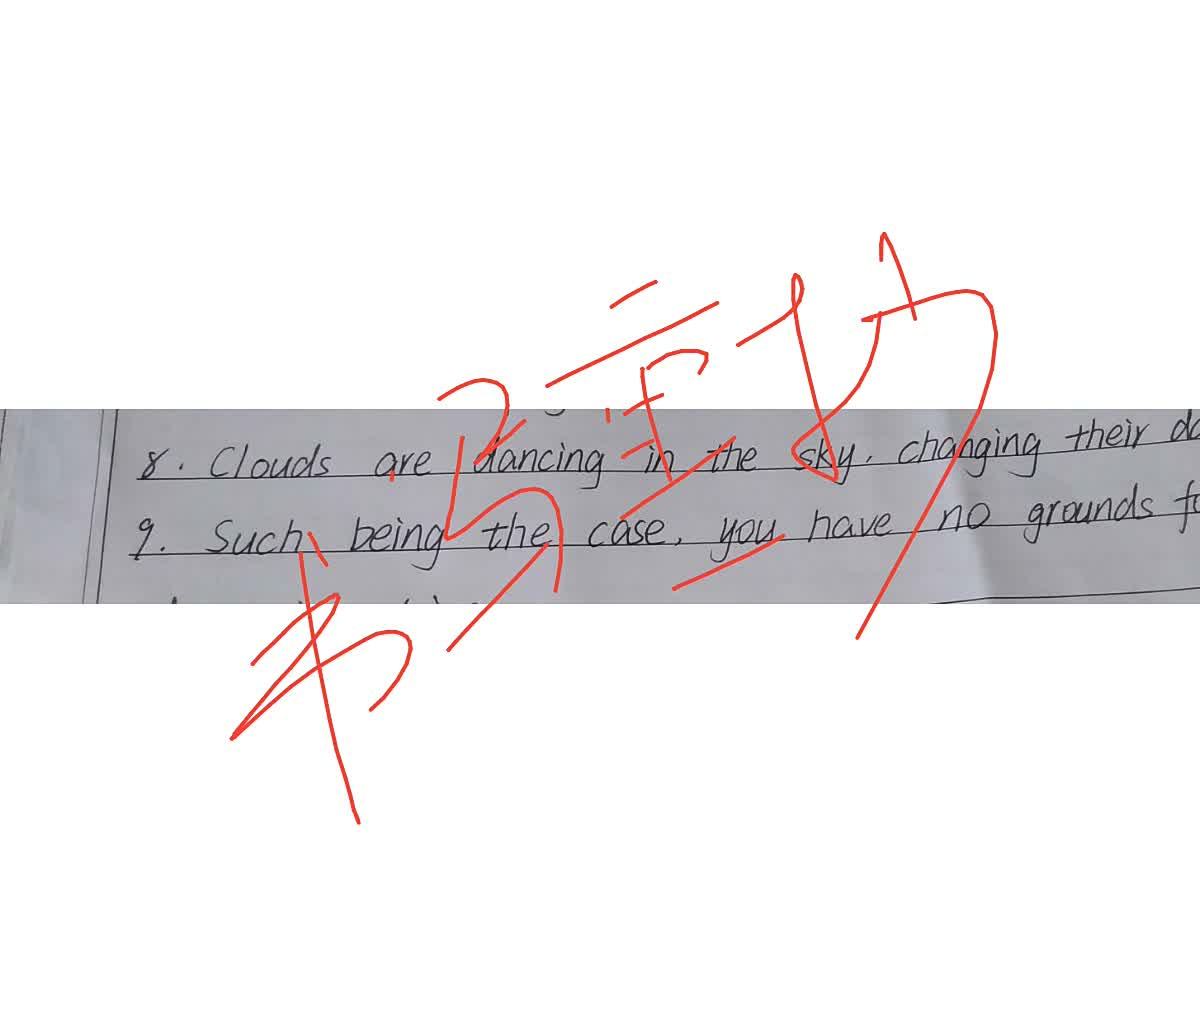 8. Clouds are dancing in the sky, changing their
9. Such being the case, you have no grounds
书写